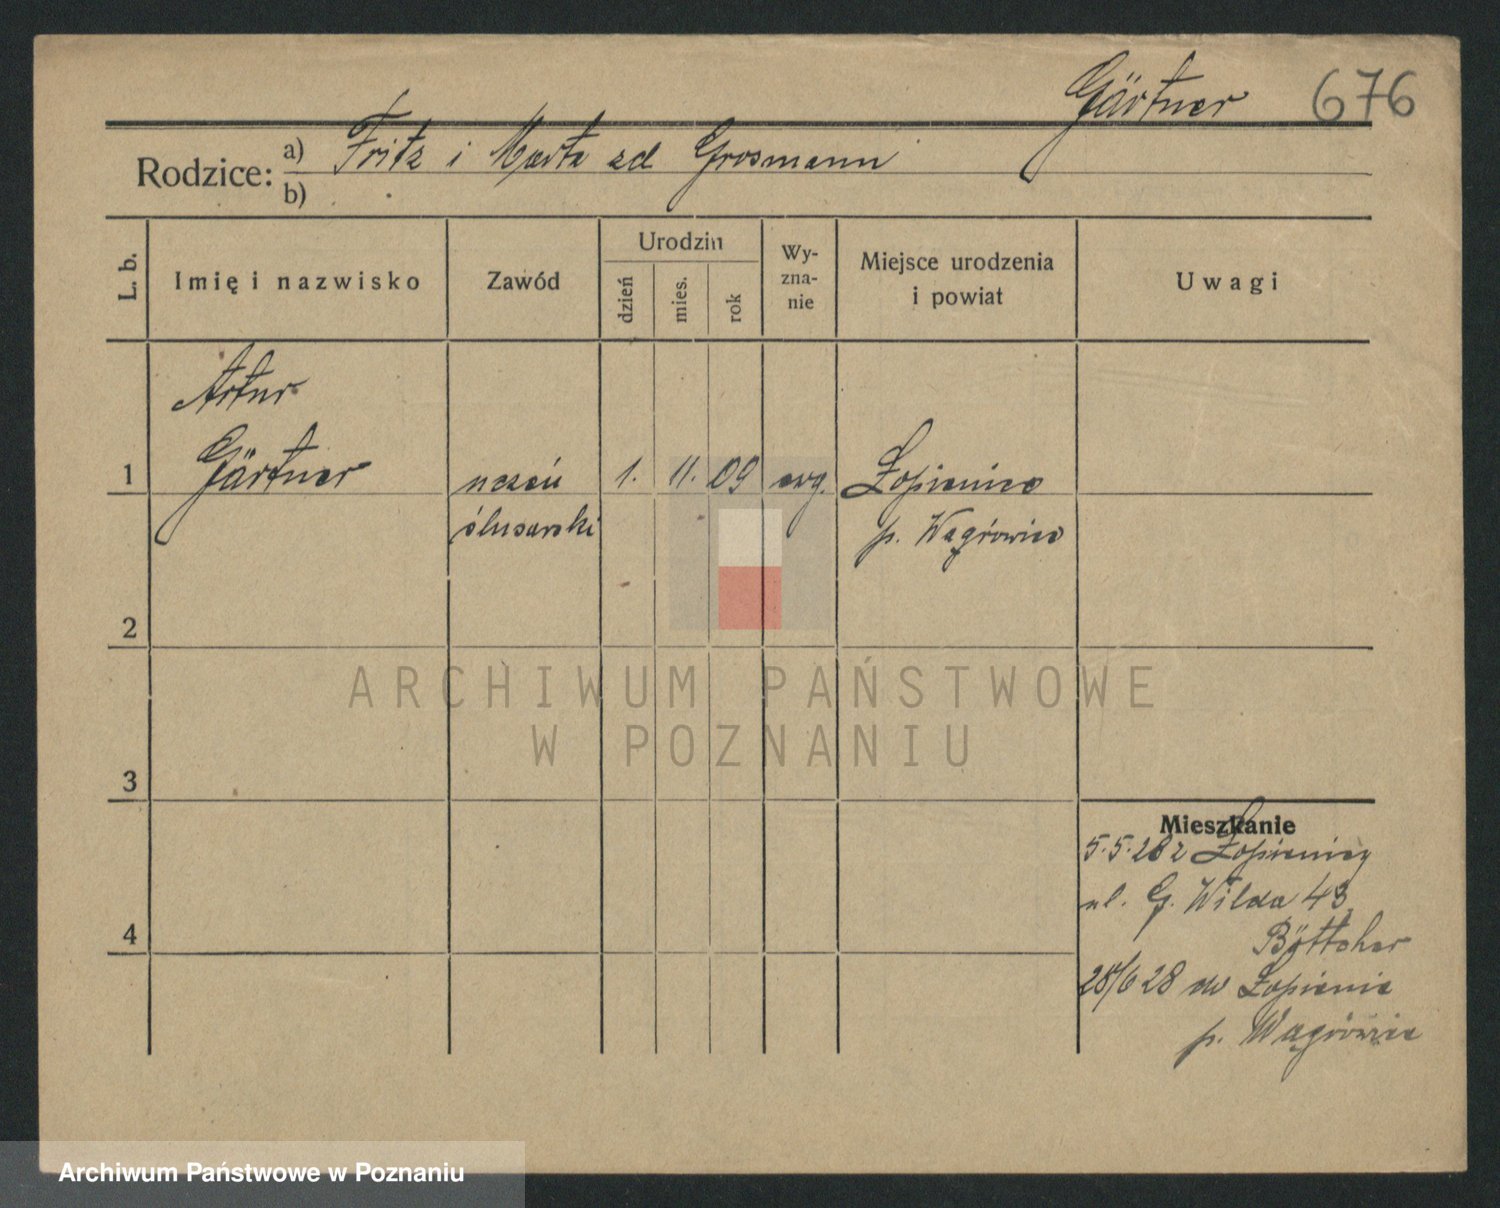 Gärtner 676
Rodzice: a) Fritz i Marta zd Grosmann
b)
L. b.
Imię i nazwisko
Zawód
Urodzin
dzień
mies.
rok
Wy-
zna-
nie
Miejsce urodzenia
i powiat
Uwagi
Artur
1 Gärtner uczeń 1. 11. 09 ewg. Łopienice
ślusarski p. Wągrówiec
2
ARCHIWUM PAŃSTWOWE
W POZNANIU
3
Mieszkanie
5.5.28 z Łopienicy
ul. G. Wilda 43
Böttcher
4
28/6 28 do Łopienic
p. Wągrówiec
Archiwum Państwowe w Poznaniu